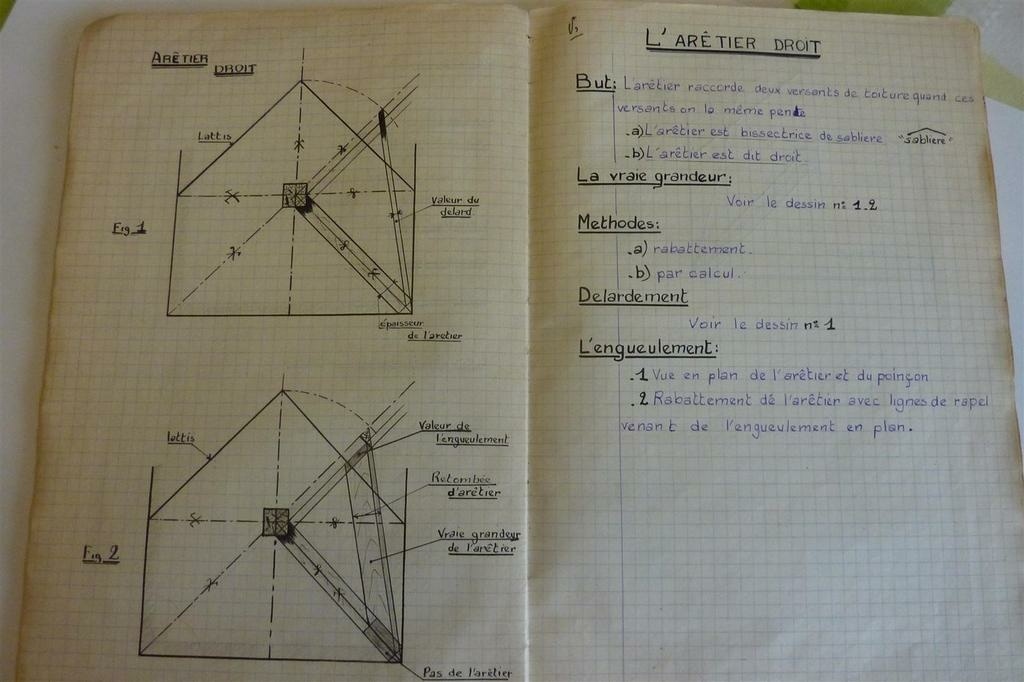 ARÊTIER
DROIT
Lattis
Valeur du
delard
Fig 1
épaisseur
de l'aretier
lattis
Valeur de
l'engueulement
Retombée
d'arêtier
Vraie grandeur
de l'arêtier
Fig 2
Pas de l'arêtier
L'ARÊTIER DROIT
But: L'arêtier raccorde deux versants de toiture quand ces
versants on la même pente
.a) L'arêtier est bissectrice de sabliere "sabliere"
.b) L'arêtier est dit droit
La vraie grandeur:
Voir le dessin n° 1.2
Methodes:
.a) rabattement.
.b) par calcul.
Delardement
Voir le dessin n° 1
L'engueulement:
.1 Vue en plan de l'arêtier et du poinçon
.2 Rabattement dé l'arêtier avec lignes de rapel
venant de l'engueulement en plan.